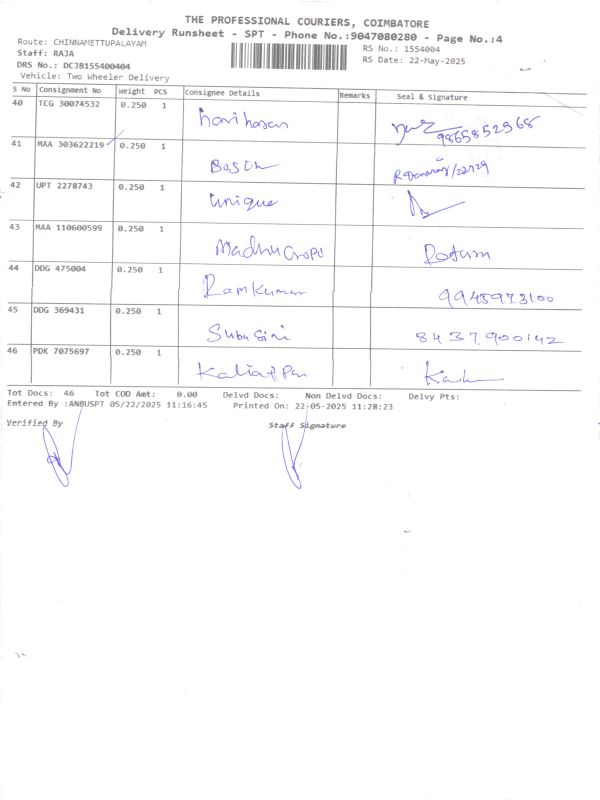 THE PROFESSIONAL COURIERS, COIMBATORE
Delivery Runsheet - SPT - Phone No.:9047080280 - Page No.:4
Route: CHINNAMETTUPALAYAM RS No.: 1554004
Staff: RAJA RS Date: 22-May-2025
DRS No.: DCJB155400404
Vehicle: Two Wheeler Delivery
S No Consignment No Weight PCS Consignee Details Remarks Seal & Signature
40 TCG 30074532 0.250 1 harihasan 9865852968
41 MAA 303622219 0.250 1 Bosch
42 UPT 2278743 0.250 1 unique
43 MAA 110600599 0.250 1 Return
44 DDG 475004 0.250 1 Ramkumar 9945973100
45 DDG 369431 0.250 1 Subasini 8437900142
46 PDK 7075697 0.250 1 Kaliappan
Tot Docs: 46 Tot COD Amt: 0.00 Delvd Docs: Non Delvd Docs: Delvy Pts:
Entered By :ANBUSPT 05/22/2025 11:16:45 Printed On: 22-05-2025 11:28:23
Verified By Staff Signature